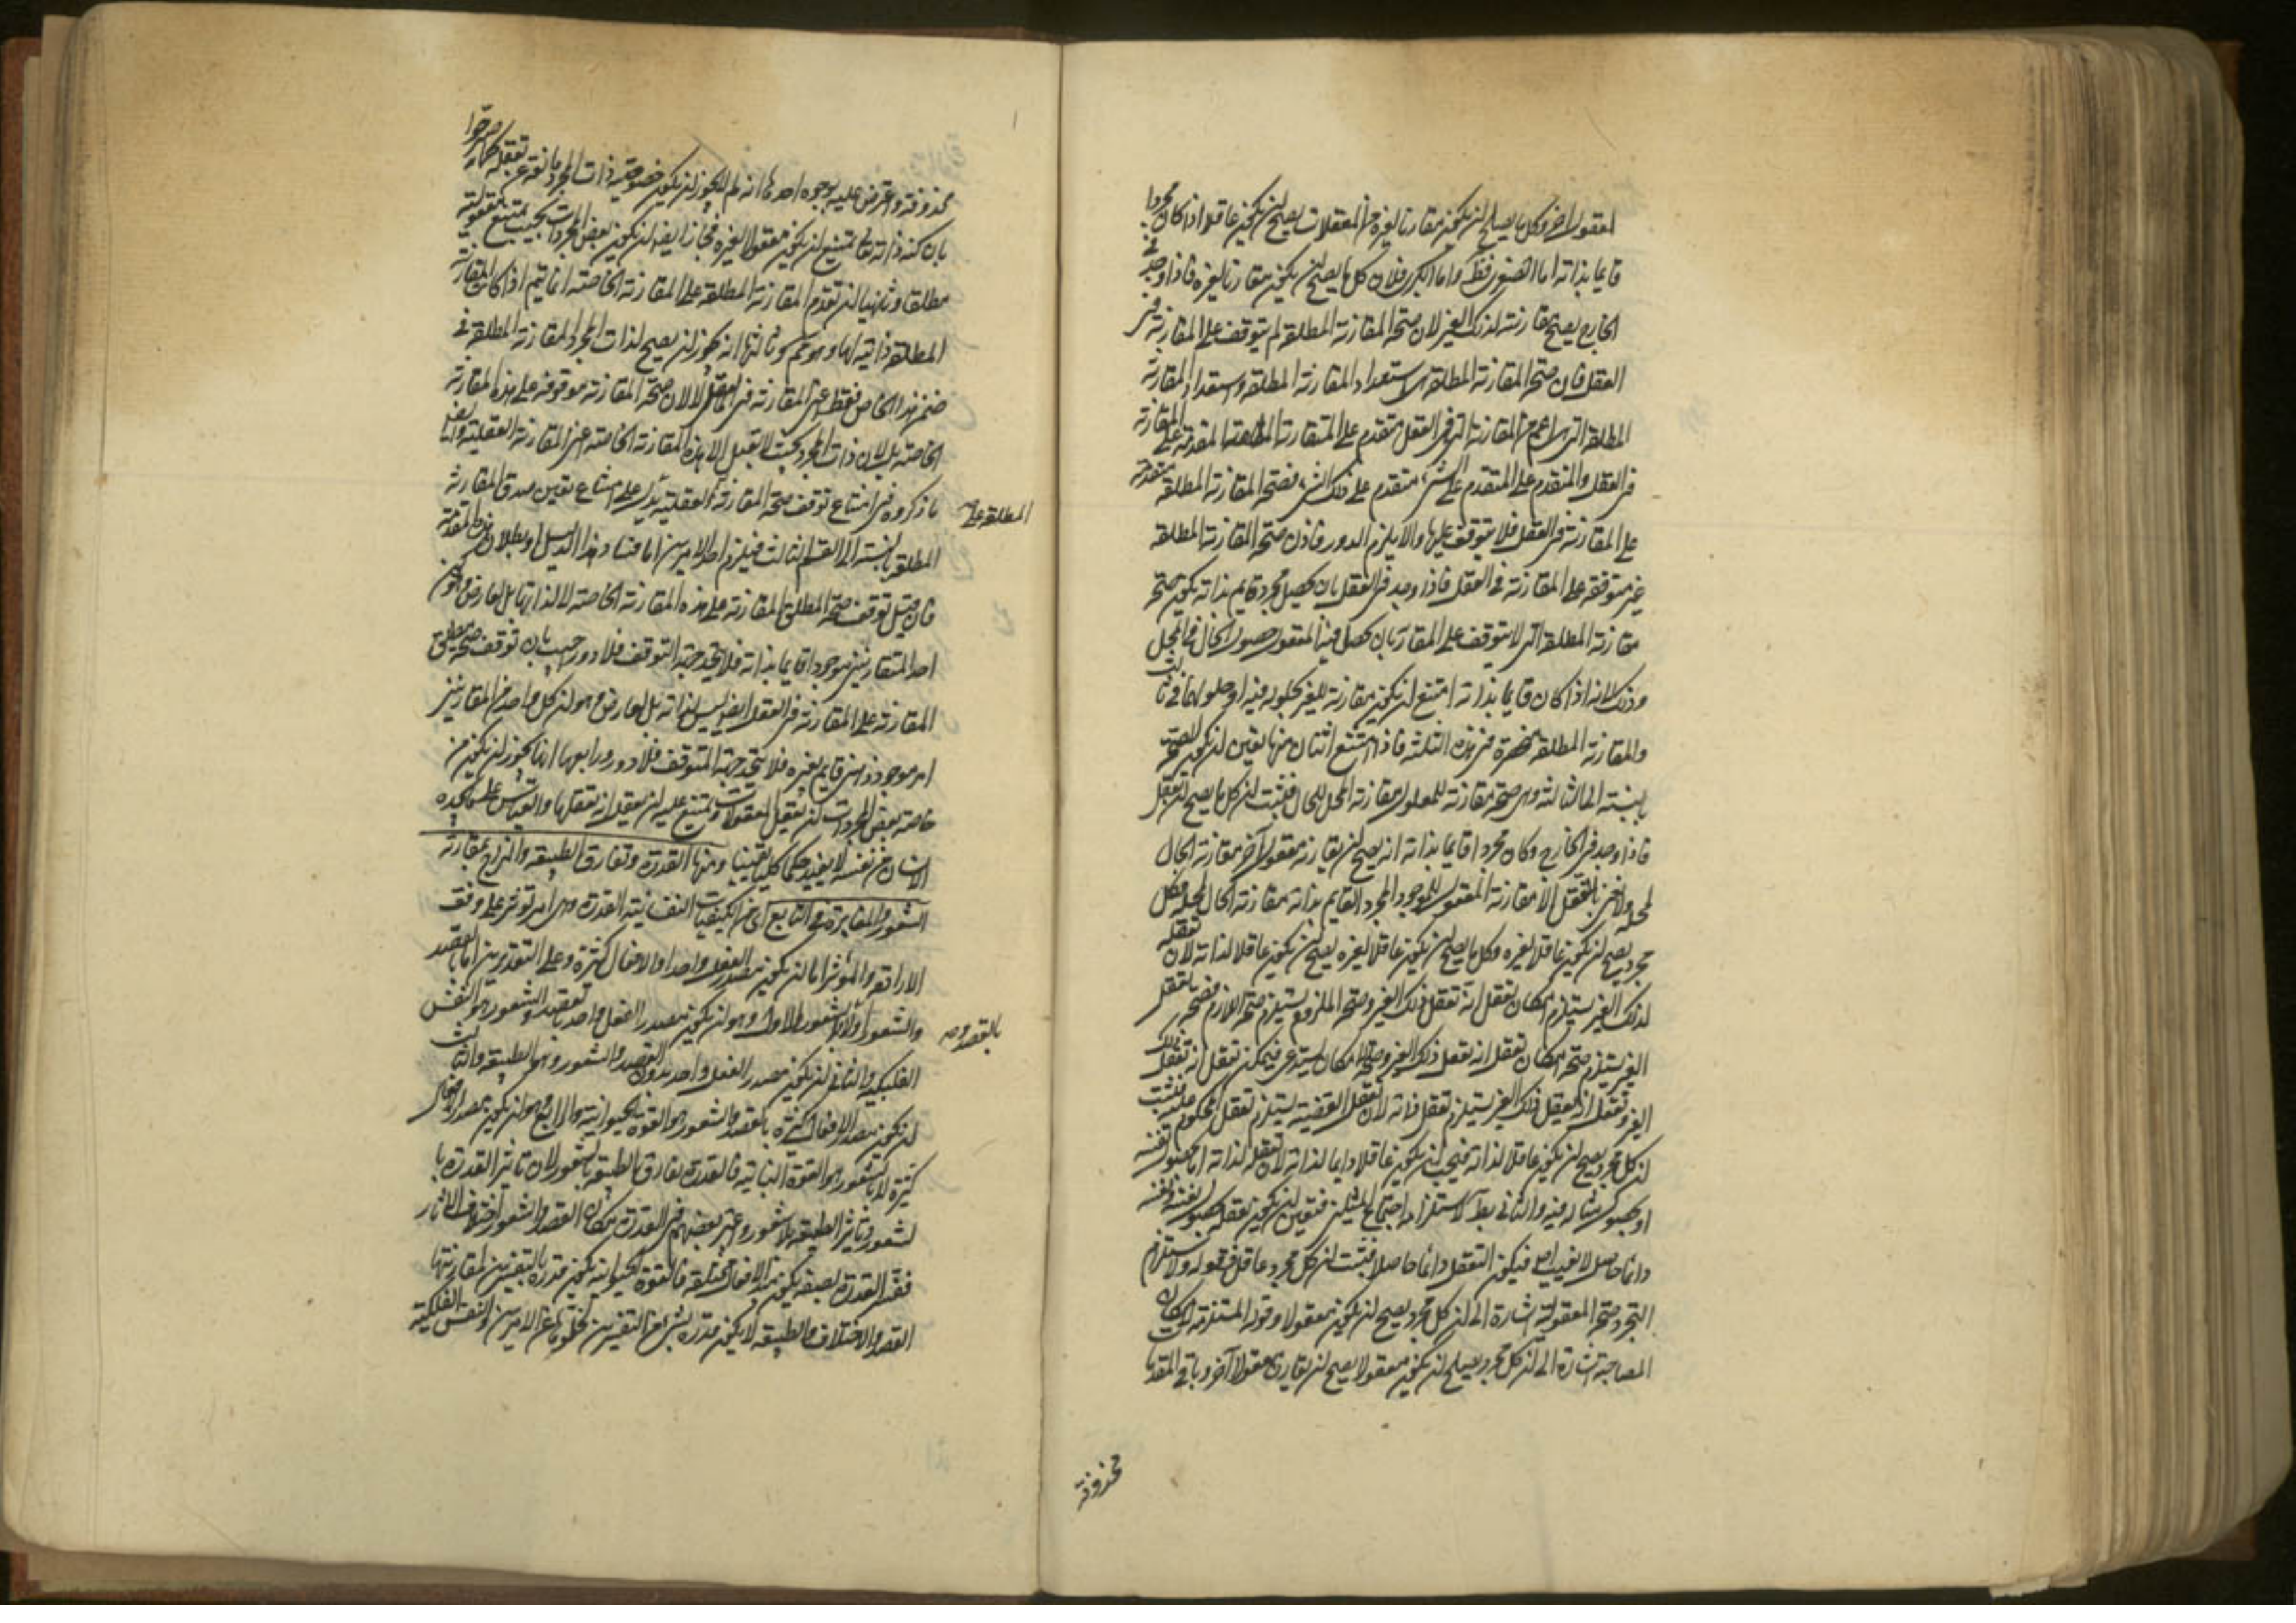 لمعقول آخر وكل ما يصلح لان يكون مقارنا لغيره من المعقولات يصح ان يكون عاقلا اذا كان مجردا
قايما بذاته اما الصغرى فظ واما الكبرى فلان كل ما يصح ان يكون مقارنا لغيره فاذا وجد في
الخارج يصح مقارنته لذلك الغير لان صحة المقارنة المطلقة لم يتوقف على المقارنة في
العقل فان صحة المقارنة المطلقة استعداد المقارنة المطلقة واستعداد المقارنة
المطلقة التي هي اعم من المقارنة التي في العقل متقدم على المقارنة المطلقة المتقدمة على المقارنة
في العقل والمتقدم على المتقدم على الشيء متقدم على ذلك الشيء فصحة المقارنة المطلقة متقدمة
على المقارنة في العقل فلا يتوقف عليها والا يلزم الدور فاذن صحة المقارنة المطلقة
غير متوقفة على المقارنة في العقل فاذا وجد في العقل بان يحصل مجرد قايم بذاته يكون صحة
مقارنة المطلقة التي لا يتوقف على المقارنة بان يحصل فيه المعقول حصول الحال في المحل
وذلك لانه اذا كان قايما بذاته امتنع ان يكون مقارنة للغير بحلوله فيه او حلولهما في ثالث
والمقارنة المطلقة منحصرة في هذه الثلثة فاذا امتنع اثنان منها تعين ان يكون الصحة
بالنسبة الى الثالثة وهي صحة مقارنته للمعقول مقارنة المحل للحال فثبت ان كل ما يصح ان يعقل
فاذا وجد في الخارج وكان مجردا قايما بذاته انه يصح ان يقارنه معقول آخر مقارنة الحال
لمحله ولا نعني بالتعقل الا مقارنة المعقول للموجود المجرد القايم بذاته مقارنة الحال لمحله فكل
مجرد يصح ان يكون عاقلا لغيره وكل ما يصح ان يكون عاقلا لغيره يصح ان يكون عاقلا لذاته لان تعقله
لذلك الغير يستلزم امكان تعقل انه تعقل ذلك الغير وصحة الملزوم يستلزم صحة اللازم فصحة تعقل
الغير يستلزم صحة امكان تعقل انه تعقل ذلك الغير وصحة الامكان يستدعي فيمكن تعقل انه تعقل ذلك
الغير وتعقل انه تعقل ذلك الغير يستلزم تعقل ذاته لان تعقل القضية يستلزم تعقل المحكوم عليه فثبت
ان كل مجرد يصح ان يكون عاقلا لذاته فيجب ان يكون عاقلا دايما لذاته لان تعقله لذاته اما بحصول نفسه
او بحصول مثاله فيه والثاني بط لاستلزامه اجتماع المثلين فتعين ان يكون تعقله بحصول نفسه ونفسه
دائما حاصل لا يغيب اصلا فيكون التعقل دائما حاصلا فثبت ان كل مجرد عاقل فقوله ولاستلزام
التجرد صحة المعقولية اشارة الى ان كل مجرد يصح ان يكون معقولا وقوله المستلزمة لامكان
المصاحبة اشارة الى ان كل مجرد يصلح ان يكون معقولا يصح ان يقارن معقولا آخر وباقي المقدمات
محذوفة
محذوفة واعترض عليه بوجوه احدها انه لم لا يجوز ان يكون خصوصية ذات المجرد مانعة عن تعقله كما صرحوا
بان كنه ذاته تعالى يمتنع ان يكون معقولا لغيره فجاز ايضا ان يكون بعض المجردات بحيث يمتنع معقوليته
مطلقا وثانيها ان تقدم المقارنة المطلقة على المقارنة الخاصة انما يتم اذا كانت المقارنة
المطلقة ذاتية لها وهو مم وثالثها انه يجوز ان يصح لذات المجرد المقارنة المطلقة في
ضمن هذا الخاص فقط اعني المقارنة في العقل لا لان صحة المقارنة موقوفة على هذه المقارنة
الخاصة بل لان ذات المجرد بحيث لا يقبل الا هذه المقارنة الخاصة اعني المقارنة العقلية وايضا
ما ذكروه في امتناع توقف صحة المقارنة المطلقة على العقلية يدل على امتناع تعين صدق المقارنة
المطلقة بالنسبة الى القسم الثالث فيلزم احد الامرين اما فساد هذا الدليل او بطلان هذه المقدمة
فان قيل توقف صحة المطلق المقارنة على هذه المقارنة الخاصة لا لذاتها بل لعارض وهو كون
احد المتقارنين موجودا قايما بذاته فلا يتحد جهة التوقف فلا دور اجيب بان توقف صحة مطلق
المقارنة على المقارنة في العقل ايضا ليس لذاته بل لعارض وهو ان كل واحد من المقارنين
امر موجود ذهني قايم بغيره فلا يتحد جهة التوقف فلا دور ورابعها انه يجوز ان يكون من
خاصة بعض المجردات ان يعقل المعقولات ويمتنع عليه ان يعقل انه تعقلها والقياس على ما يجده
الانسان من نفسه لا يفيد حكما كليا يقينيا ومنها القدرة وتفارق الطبيعة والمزاج بمقارنة
الشعور والمغايرة في التابع اي من الكيفيات النفسانية القدرة وهي امر تؤثر على وفق
الارادة والمؤثر اما ان يكون مصدر الفعل واحدا والافعال كثيرة وعلى التقديرين اما بالقصد
والشعور اولا بالقصد والشعور والاول وهو ان يكون مصدر الفعل واحد بالقصد والشعور هو النفس
الفلكية والثاني ان يكون مصدر الفعل واحد بدون القصد والشعور وهي الطبيعة والثالث
ان يكون مصدر الافعال كثيرة بالقصد والشعور هو القوة الحيوانية والرابع وهو ان يكون مصدر الافعال
كثيرة لا بالشعور هو القوة النباتية فالقدرة تفارق الطبيعة بالشعور لان تاثير القدرة با
لشعور وتاثير الطبيعة بلا شعور واعتبر بعضهم في القدرة مكان القصد والشعور اختلاف الآثار
ففسر القدرة بصفة يكون مبدأ لافعال مختلفة فالقوة الحيوانية يكون قدرة بالتفسيرين لمقارنتها
القصد والاختلاف والطبيعة لا يكون قدرة بشيء من التفسيرين لخلوها عن الامرين والنفس الفلكية
المطلقة على
بالقصد و صه